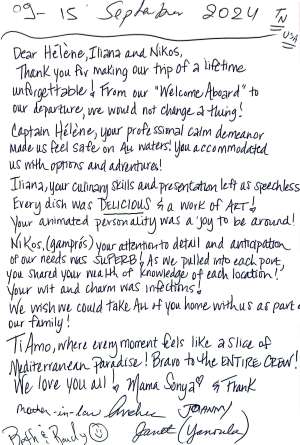 09-15 September 2024 TN
USA
Dear Hélène, Iliana and Nikos,
Thank you for making our trip of a lifetime
unforgettable! From our "Welcome Aboard" to
our departure, we would not change a thing!
Captain Hélène, your professional calm demeanor
made us feel safe on ALL waters! You accommodated
us with options and adventures!
Iliana, your culinary skills and presentation left as speechless
Every dish was DELICIOUS & a work of ART!
Your animated personality was a joy to be around!
Nikos, (gamprós) your attention to detail and anticipation
of our needs was SUPERB! As we pulled into each port,
you shared your wealth of knowledge of each location!
Your wit and charm was infectious!
We wish we could take ALL of you home with us as part of
our family!
Ti Amo, where every moment feels like a slice of
Mediterranean Paradise! Bravo to the ENTIRE CREW!
We love you all! Mama Sonya & Frank
mother-in-law JOANNY
Beth & Randy Janet